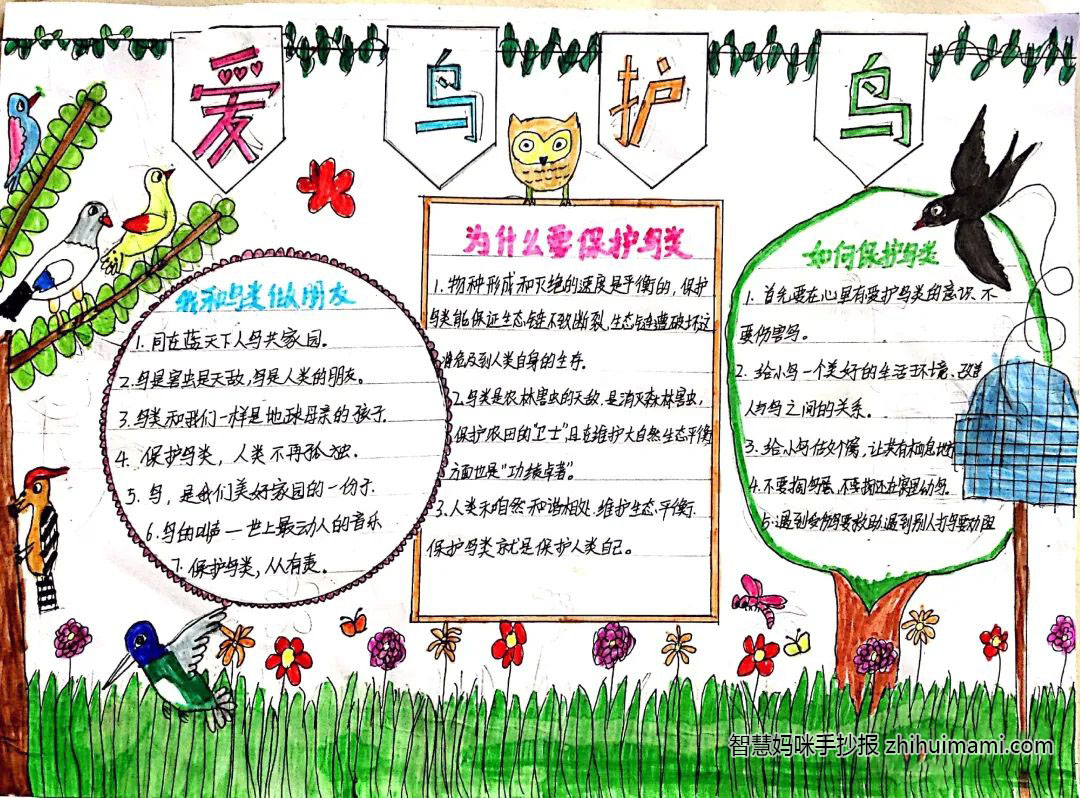 爱鸟护鸟
我和鸟类做朋友
1. 同在蓝天下人鸟共家园。
2.鸟是害虫是天敌,鸟是人类的朋友。
3.鸟类和我们一样是地球母亲的孩子.
4. 保护鸟类，人类不再孤独.
5. 鸟，是我们美好家园的一份子.
6.鸟的叫声一世上最动人的音乐
7. 保护鸟类，人人有责。
为什么要保护鸟类
1.物种形成和灭绝的速度是平衡的,保护
鸟类能保证生态链不致断裂,生态链遭破坏这
将危及到人类自身的生存.
2.鸟类是农林害虫的天敌.是消灭森林害虫,
保护农田的"卫士",且在维护大自然生态平衡
方面也是"功绩卓著"。
3.人类和自然和谐相处.维护生态平衡.
保护鸟类就是保护人类自己。
如何保护鸟类
1. 首先要在心里有爱护鸟类的意识.不
要伤害鸟。
2. 给小鸟一个美好的生活环境、改善
人与鸟之间的关系。
3. 给小鸟做个窝,让其有栖息地
4.不要掏鸟窝,不要掏还在窝里幼鸟.
5.遇到受伤鸟要救助,遇到别人打鸟要劝阻
智慧妈咪手抄报 zhihuimami.com